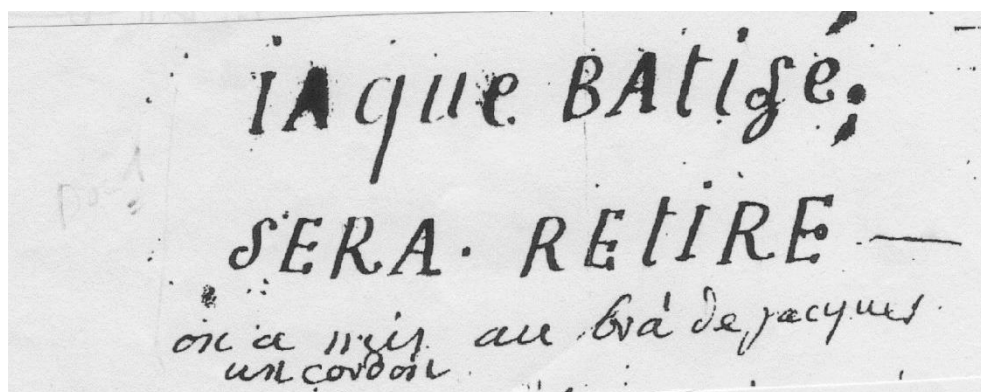 IAque BAtisé;
SERA. REtIRE —
on a mis au bra de jacques
un cordon